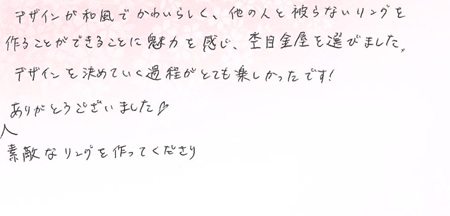 デザインが和風でかわいらしく、他の人と被らないリングを
作ることができることに魅力を感じ、杢目金屋を選びました。
デザインを決めていく過程がとても楽しかったです!
ありがとうございました♡
素敵なリングを作ってくださり